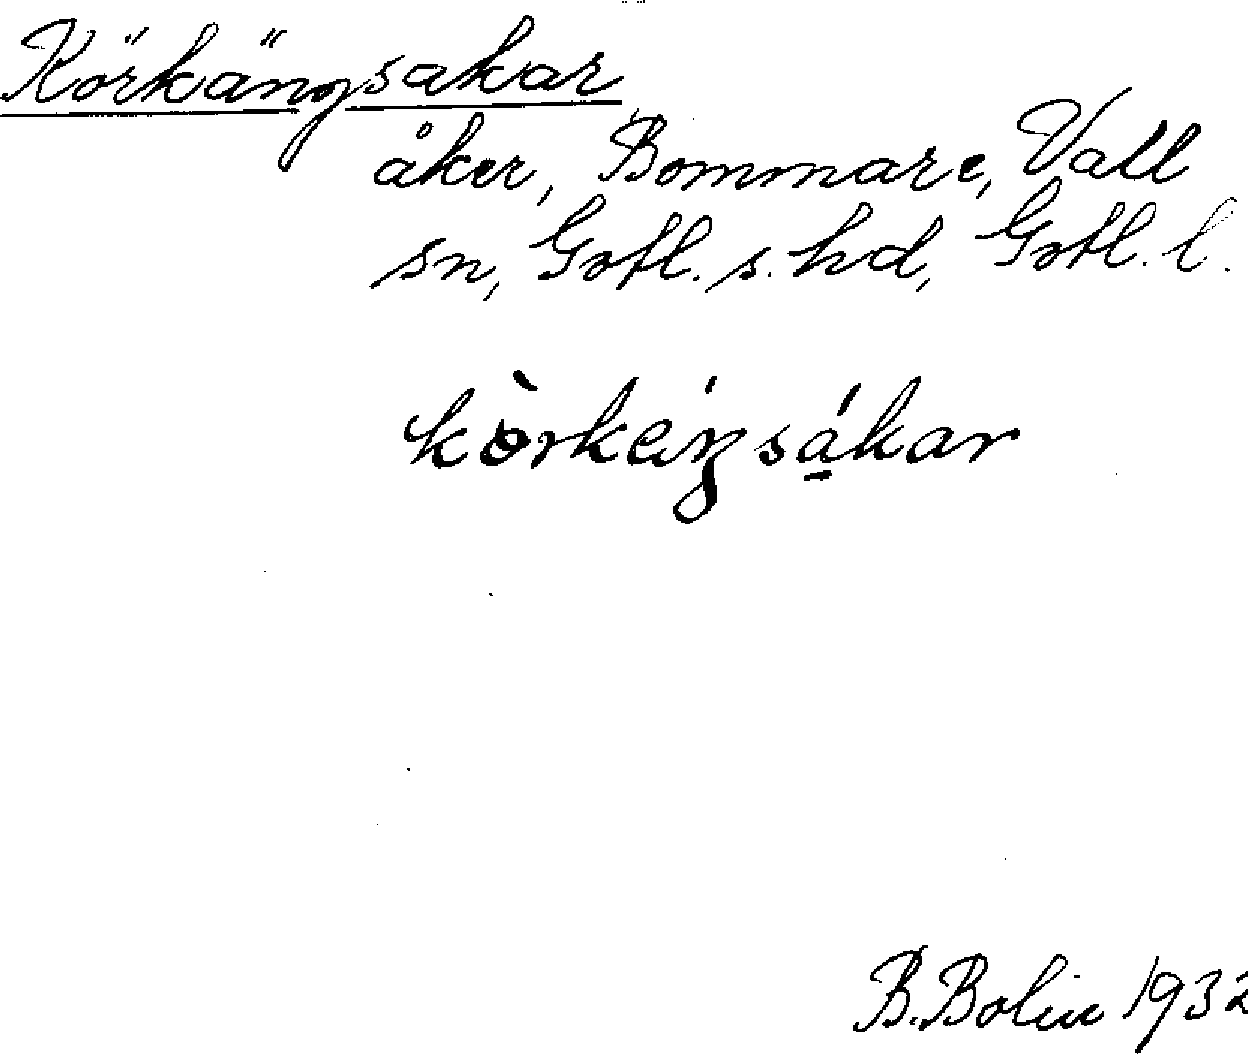 Körkängsakar
åker, Bommare, Vall
sn, Gotl. s. hd, Gotl. l.
kòrkeiŋsákar
B. Bolin 1932